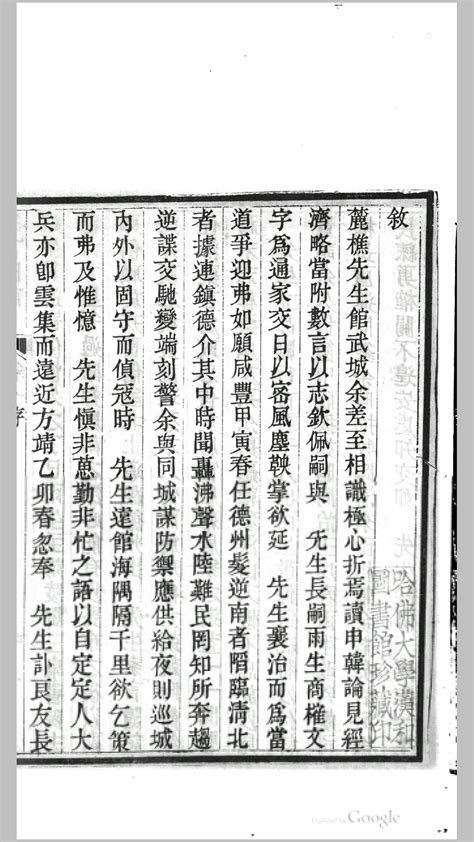 敘
麓樵先生館武城余差至相識極心折焉讀申韓論見經
濟略當附數言以志欽佩嗣與　先生長嗣雨生商榷文
字為通家交日以密風塵鞅掌欲延　先生襄治而為當
道爭迎弗如願咸豐甲寅春任德州髮逆南者陷臨清北
者據連鎮德介其中時聞轟沸聲水陸難民罔知所奔趨
逆諜交馳變端刻警余與同城謀防禦應供給夜則巡城
內外以固守而偵寇時　先生遠館海隅隔千里欲乞策
而弗及惟憶　先生慎非葸勤非忙之語以自定定人大
兵亦卽雲集而遠近方靖乙卯春忽奉　先生訃艮友長
序
哈佛大學漢和
圖書館珍藏印
Digitized by Google